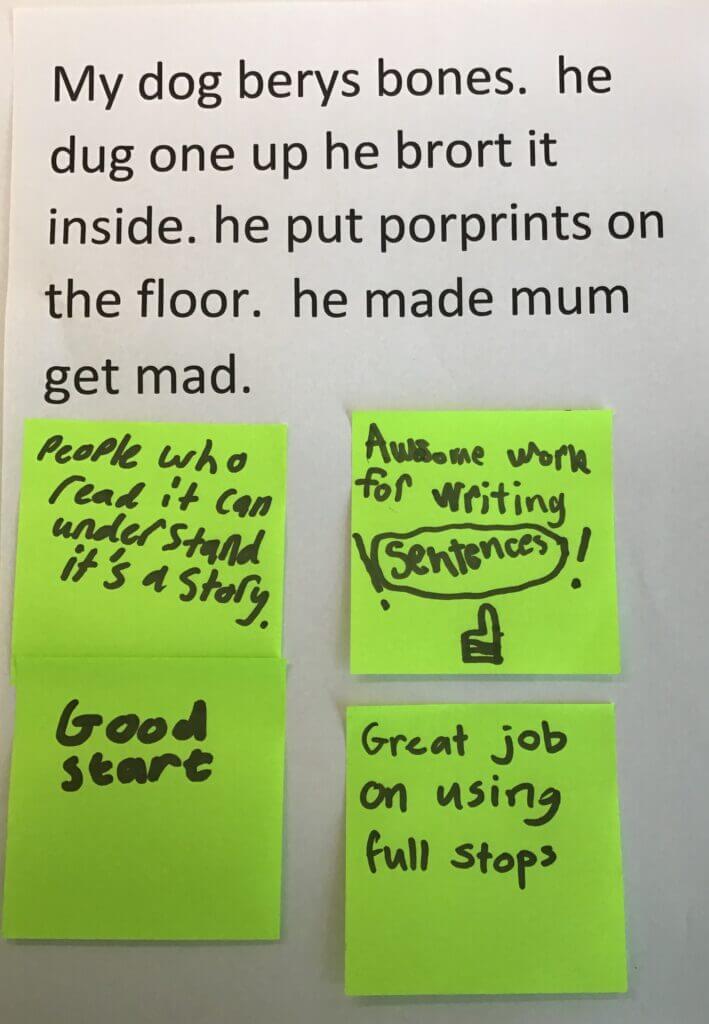 My dog berys bones.  he
dug one up he brort it
inside. he put porprints on
the floor.  he made mum
get mad.
People who
read it can
understand
it's a story.
Awsome work
for writing
! sentences !
Good
start
Great job
on using
full stops